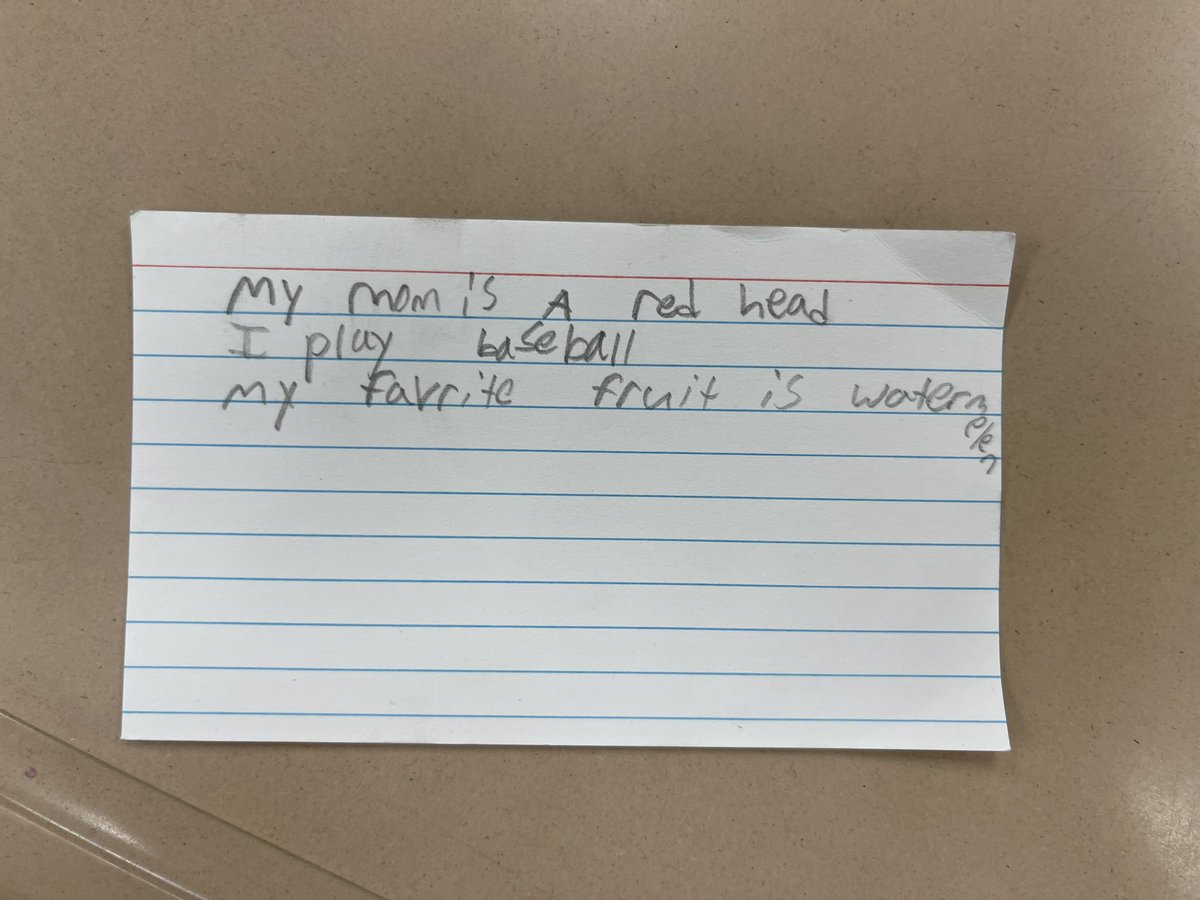 My mom is A red head
I play baseball
my favrite fruit is watermelen